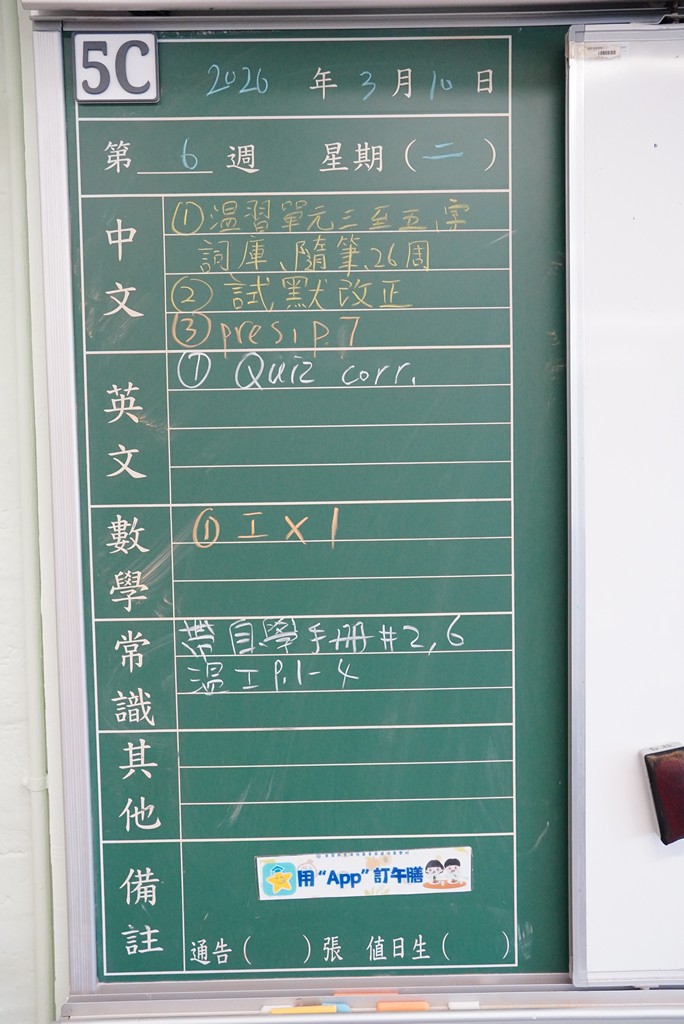 5C
2026 年 3 月 10 日
第 6 週 星期(二)
中文
①温習單元三至五,字
詞庫、隨筆、26周
②試默改正
③pres1 p.7
英文
① Quiz corr.
數學
① 工 x 1
常識
帶自學手册#2,6
温工 P.1-4
其他
備註
用“App”訂午膳
通告( )張 值日生( )